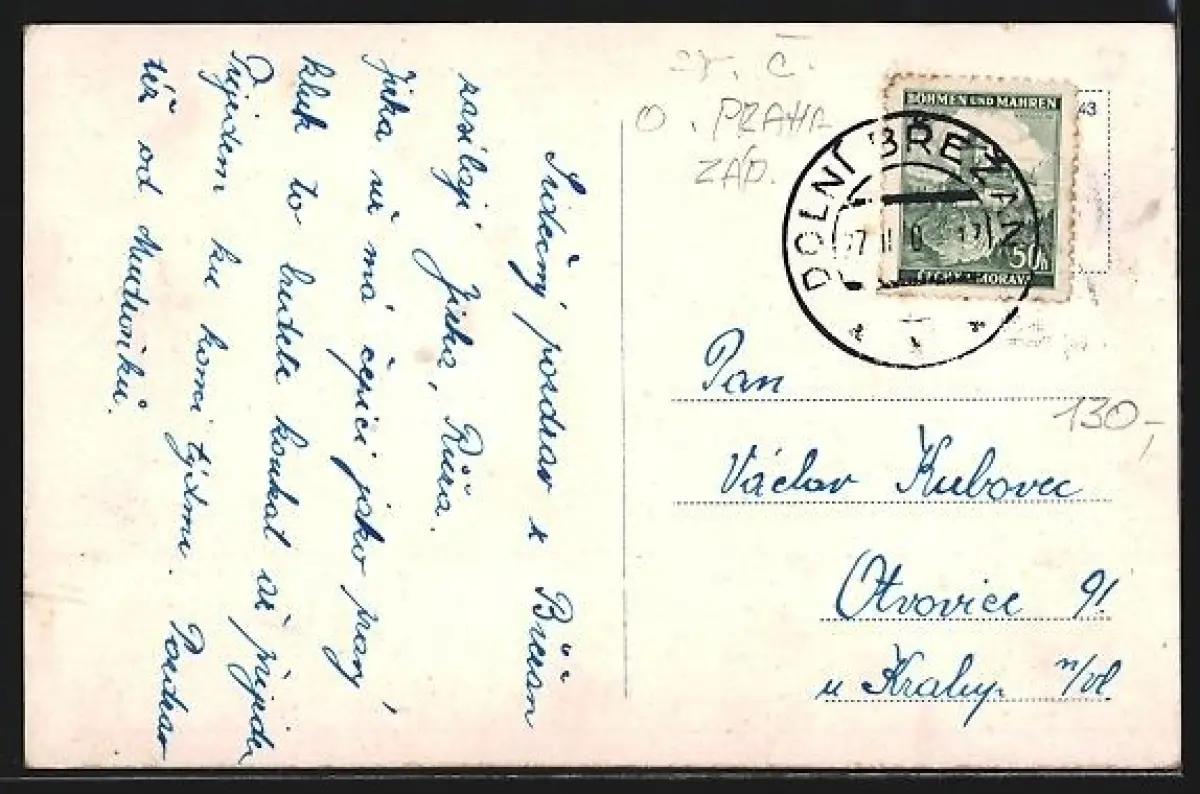 Srdečný pozdrav z Břežan
zasílají Jirka, Růža.
Jirka už má čepici jako pravý
kluk to budete koukat až přijede.
Přijedem ku konci týdnu. Pozdrav
též od Mudroňků.
č.
O. PRAHA
ZÁP.
BÖHMEN UND MÄHREN
43
DOLNÍ BŘEŽANY
50h
ČECHY A MORAVA
Pan
130,-
Václav Kubovec
Otvovice 91
u Kralup n/vl